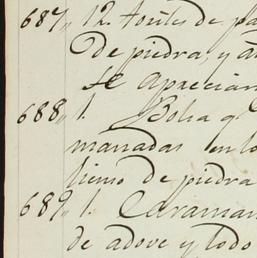 687,, 12. toriles de pa
de piedra, y a
se aprecian
688,, 1. Bolsa q
manadas en lo
lienso de piedra
689,, 1. Caraman
de adove y todo